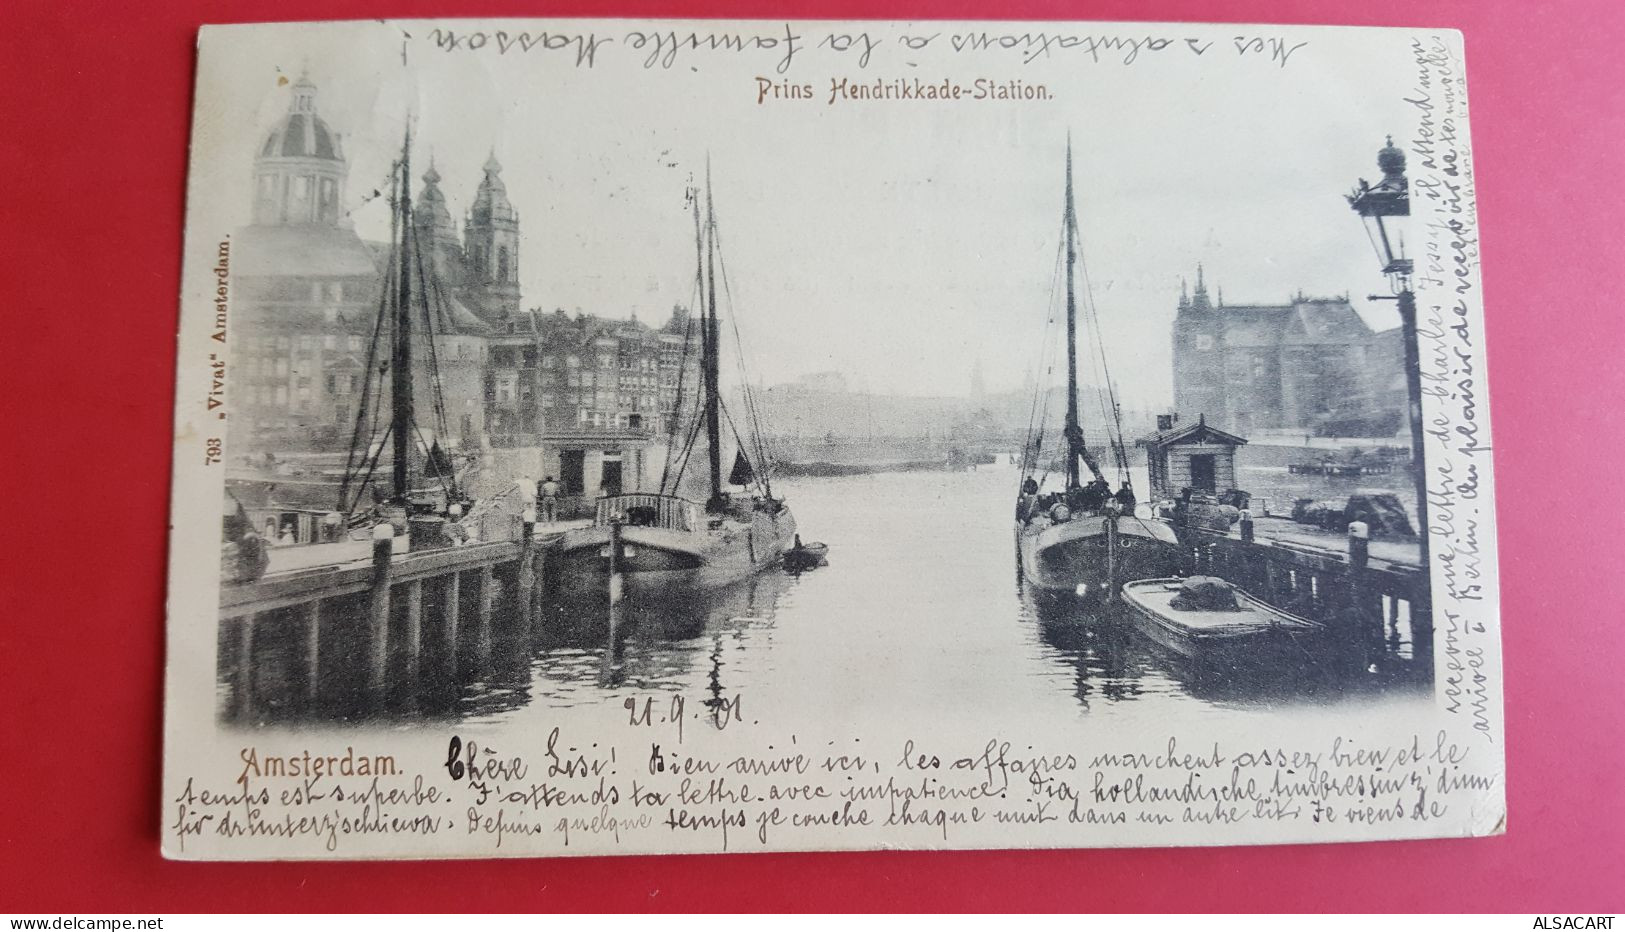 Mes salutations à la famille Masson !
Prins Hendrikkade-Station.
793 „Vivat“ Amsterdam.
21. 9. 01.
Amsterdam.
Chère Lisi! Bien arrivé ici, les affaires marchent assez bien et le
temps est superbe. J'attends ta lettre avec impatience. Dia hollandische timbres sin z'dinn
fir dr'unterz'schliewa. Depuis quelque temps je couche chaque nuit dans un autre lit. Je viens de
recevoir une lettre de Charles Jessy, il attend mon
arrivée à Berlin. Au plaisir de recevoir de tes nouvelles
ALSACART